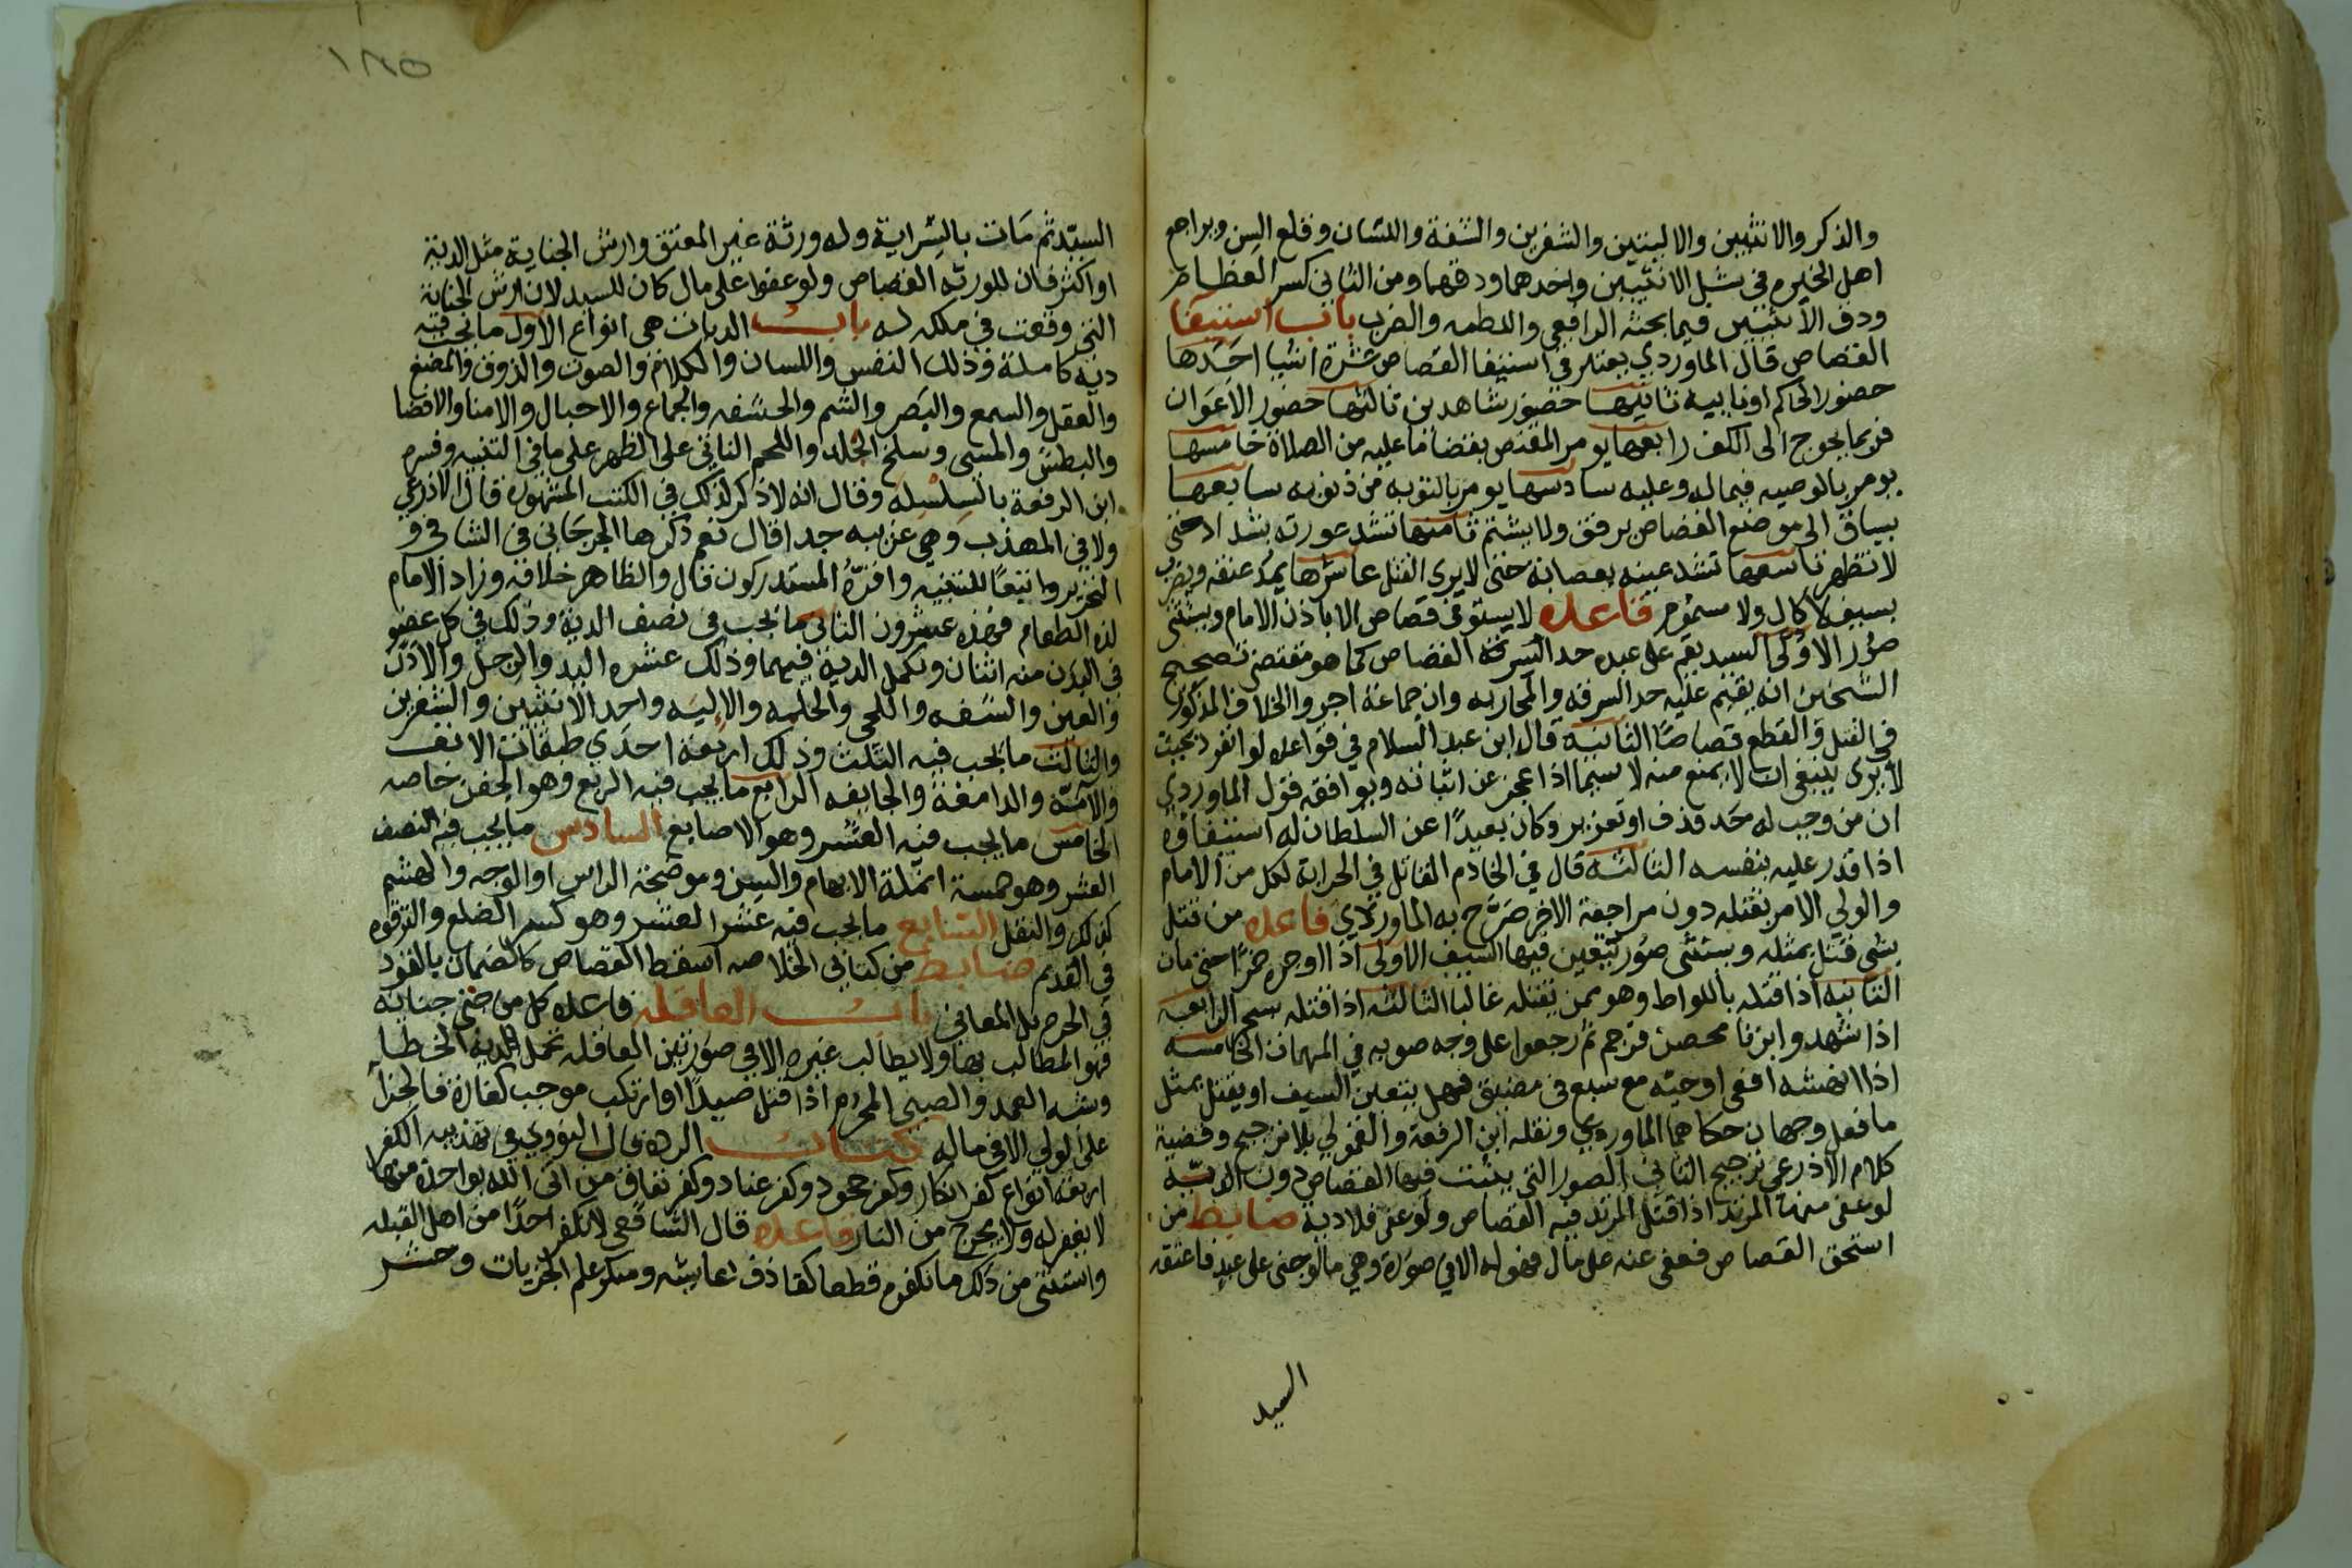 والذكر والانثيين والاليتين والشفرين والشفة واللسان وقلع السن ويراجع
اهل الخبره في شلل الانثيين واحدهما ودقهما ومن الثاني كسر العظام
ودق الانثيين فيما بحثه الرافعي واللطمه والضرب باب استيفا
القصاص قال الماوردي يعتبر في استيفا القصاص عشرة اشيا احدها
حضور الحاكم او نايبه ثانيها حضور شاهدين ثالثها حضور الاعوان
فربما يحوج الى الكف رابعها يومر المقتص بقضا ما عليه من الصلاة خامسها
يومر بالوصيه فيما له وعليه سادسها يومر بالتوبه من ذنوبه سابعها
يساق الى موضع القصاص برفق ولا يشتم ثامنها تشد عورته بشداد حتى
لا تظهر تاسعها تشد عينه بعصابة حتى لا يرى القتل عاشرها يمد عنقه ويضرب
بسيف لا كال ولا مسموم قاعده لا يستوفى قصاص الا باذن الامام ويستثنى
صور الاولى السيد يقيم على عبده حد السرقة القصاص كما هو مقتضى تصحيح
الشيخين انه يقيم عليه حد السرقه والمحاربه وان جماعة اجروا الخلاف المذكور
في القتل والقطع قصاصا الثانيه قال ابن عبد السلام في قواعده لو انفرد بحيث
لا يرى ينبغي ان لا يمنع منه لا سيما اذا عجز عن اثباته ويوافقه قول الماوردي
ان من وجب له حد قذف او تعزير وكان بعيدا عن السلطان له استيفاؤه
اذا قدر عليه بنفسه الثالثه قال في الخادم القاتل في الحرابة لكل من الامام
والولي الامر بقتله دون مراجعة الاخر صرح به الماوردي قاعده من قتل
بشي قتل بمثله ويستثنى صور يتعين فيها السيف الاولى اذا اوجره خمرا حتى مات
الثانيه اذا قتله باللواط وهو ممن يقتله غالبا الثالثه اذا قتله بسحر الرابعه
اذا شهدوا بزنا محصن فرجم ثم رجعوا على وجه صوبه في المهمات الخامسه
اذا انهشه افعى او حيه مع سبع في مضيق فهل يتعين السيف او يقتل بمثل
ما فعل وجهان حكاهما الماوردي ونقله ابن الرفعة والقمولي بلا ترجيح وقضية
كلام الاذرعي ترجيح الثاني الصور التي يثبت فيها القصاص دون الديه
لو عفى منها المرتد اذا قتل المرتد فيه القصاص ولو عفى فلا دية ضابط من
استحق القصاص فعفى عنه على مال فهو له الا في صورة وهي ما لو جنى على عبد فاعتقه
السيد
١٨٥
السيد ثم مات بالسراية وله ورثة غير المعتق وارش الجناية مثل الدية
او اكثر فان للورثه القصاص ولو عفوا على مال كان للسيد لان ارش الجناية
التي وقعت في ملكه له باب الديات هي انواع الاول ما تجب فيه
دية كاملة وذلك النفس واللسان والكلام والصوت والذوق والمضغ
والعقل والسمع والبصر والشم والحشفه والجماع والاحبال والامنا والافضا
والبطش والمشي وسلخ الجلد واللحم الناتي على الظهر على ما في التنبيه وفسره
ابن الرفعة بالسلسلة وقال انه لا ذكر لذلك في الكتب المشهوره قال الاذرعي
ولا في المهذب وهي غريبه جدا قال نعم ذكرها الجرجاني في الشافي و
التحرير واتبعا للتنبيه واقره المستدركون قال والظاهر خلافه وزاد الامام
لذة الطعام فهذه عشرون الثاني ما تجب فيه نصف الدية وذلك في كل عضو
في البدن منه اثنان وتكمل الدية فيهما وذلك عشره اليد والرجل والاذن
والعين والشفه واللحي والحلمه والاليه واحد الانثيين والشفرين
والثالث ما يجب فيه الثلث وذلك اربعة احدي طبقات الانف
والآمة والدامغة والجايفه الرابع ما يجب فيه الربع وهو الجفن خاصه
الخامس ما يجب فيه العشر وهو الاصابع السادس ما يجب فيه نصف
العشر وهو خمسة انملة الابهام والسن وموضحة الراس او الوجه والهشم
كذلك والنقل السابع ما يجب فيه عشر العشر وهو كسر الضلع والترقوه
في القديم ضابط من كتابي الخلاصه اسقط القصاص كالضمان بالقود
في الحرم بل المعاني باب العاقله قاعده كل من جنى جناية
فهو المطالب بها ولا يطالب غيره الا في صورتين العاقله تحمل الدية الخطا
وشبه العمد والصبي المحرم اذا قتل صيدا او ارتكب موجب كفارة فالجزا
على الولي لا في ماله كتاب الرده قال النووي في تهذيبه الكفر
اربعة انواع كفر انكار وكفر جحود وكفر عناد وكفر نفاق من اتى الله بواحدة منها
لا يغفر له ولا يخرج من النار قاعده قال الشافعي لا نكفر احدا من اهل القبله
واستثنى من ذلك ما نكفره قطعا كقاذف عايشه ومنكر علم الجزيات وحشر